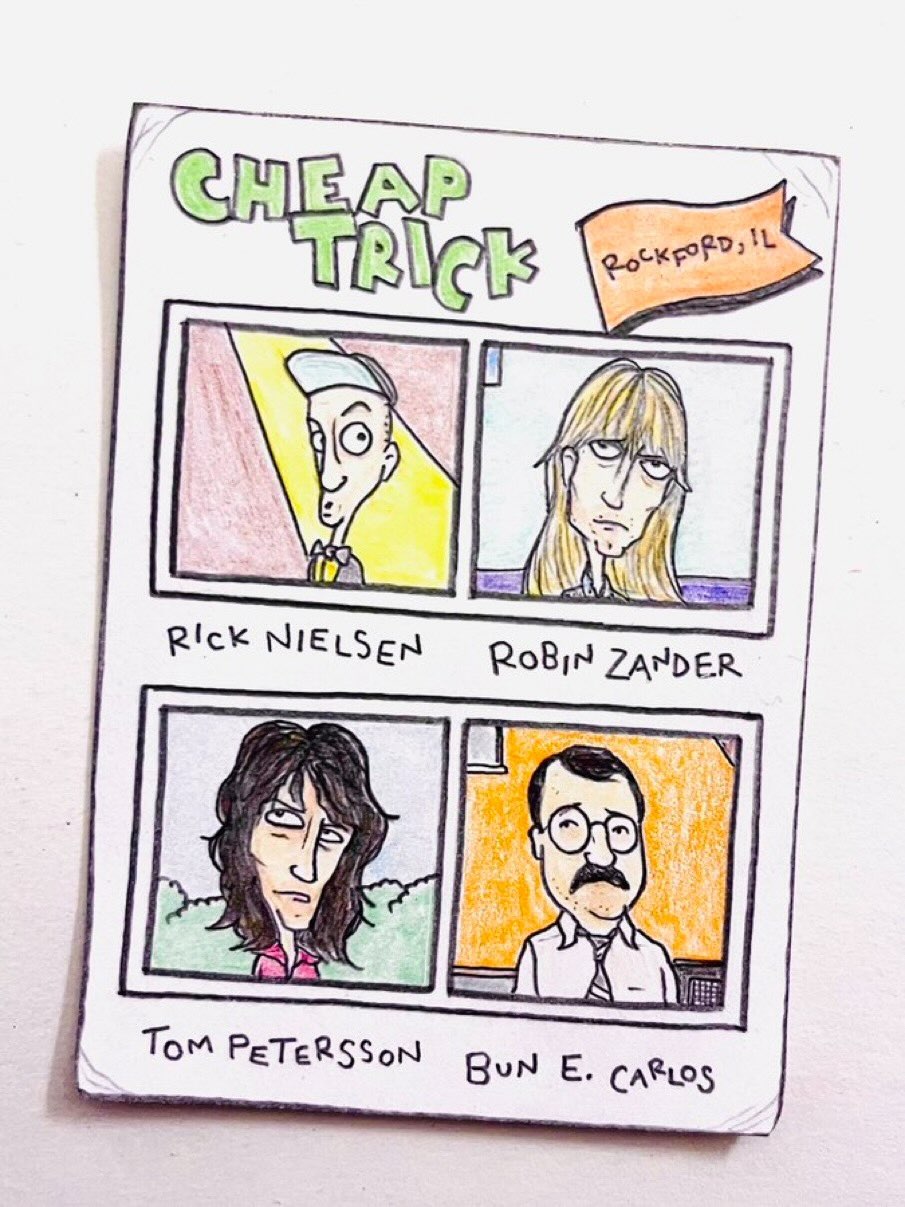 CHEAP
TRICK
ROCKFORD, IL
RICK NIELSEN
ROBIN ZANDER
TOM PETERSSON
BUN E. CARLOS